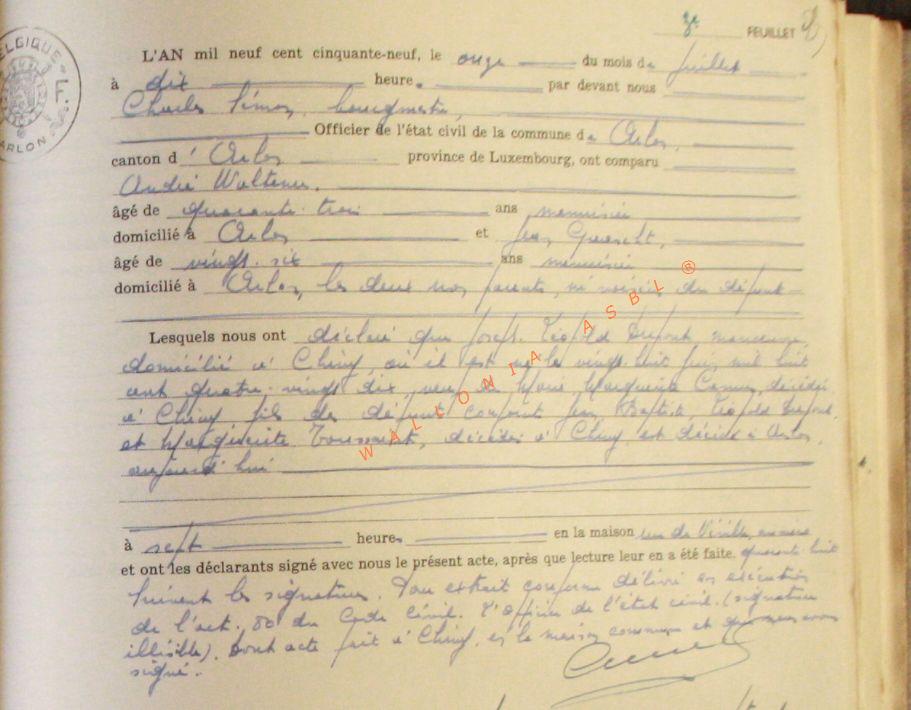 3e FEUILLET
BELGIQUE
ARLON
L'AN mil neuf cent cinquante-neuf, le onze du mois de juillet
à dix heures par devant nous
Charles Simon, bourgmestre,
Officier de l'état civil de la commune de Arlon,
canton d'Arlon province de Luxembourg, ont comparu
André Waltener,
âgé de quarante-trois ans menuisier
domicilié à Arlon et Jean
âgé de vingt-six ans menuisier
domicilié à Arlon, les deux non parents, ni voisins du défunt
Lesquels nous ont déclaré que Joseph Léopold Dupont manœuvre,
domicilié à Chiny, où il est né le vingt-huit juin mil huit
cent quatre-vingt-dix, veuf de Marie Marguerite décédée
à Chiny fils de défunt conjoint Jean Baptiste Léopold Dupont,
et Marguerite Toussaint, décédés à Chiny, est décédé à Arlon,
aujourd'hui
à sept heures en la maison rue de Viville, numéro
et ont les déclarants signé avec nous le présent acte, après que lecture leur en a été faite. quarante-huit
Suivent les signatures. Pour extrait conforme délivré en exécution
de l'art. 80 du Code Civil. L'Officier de l'état civil. (signature
illisible). Dont acte fait à Chiny, en la maison commune et que nous avons
signé.
WALLONIA ASBL ®